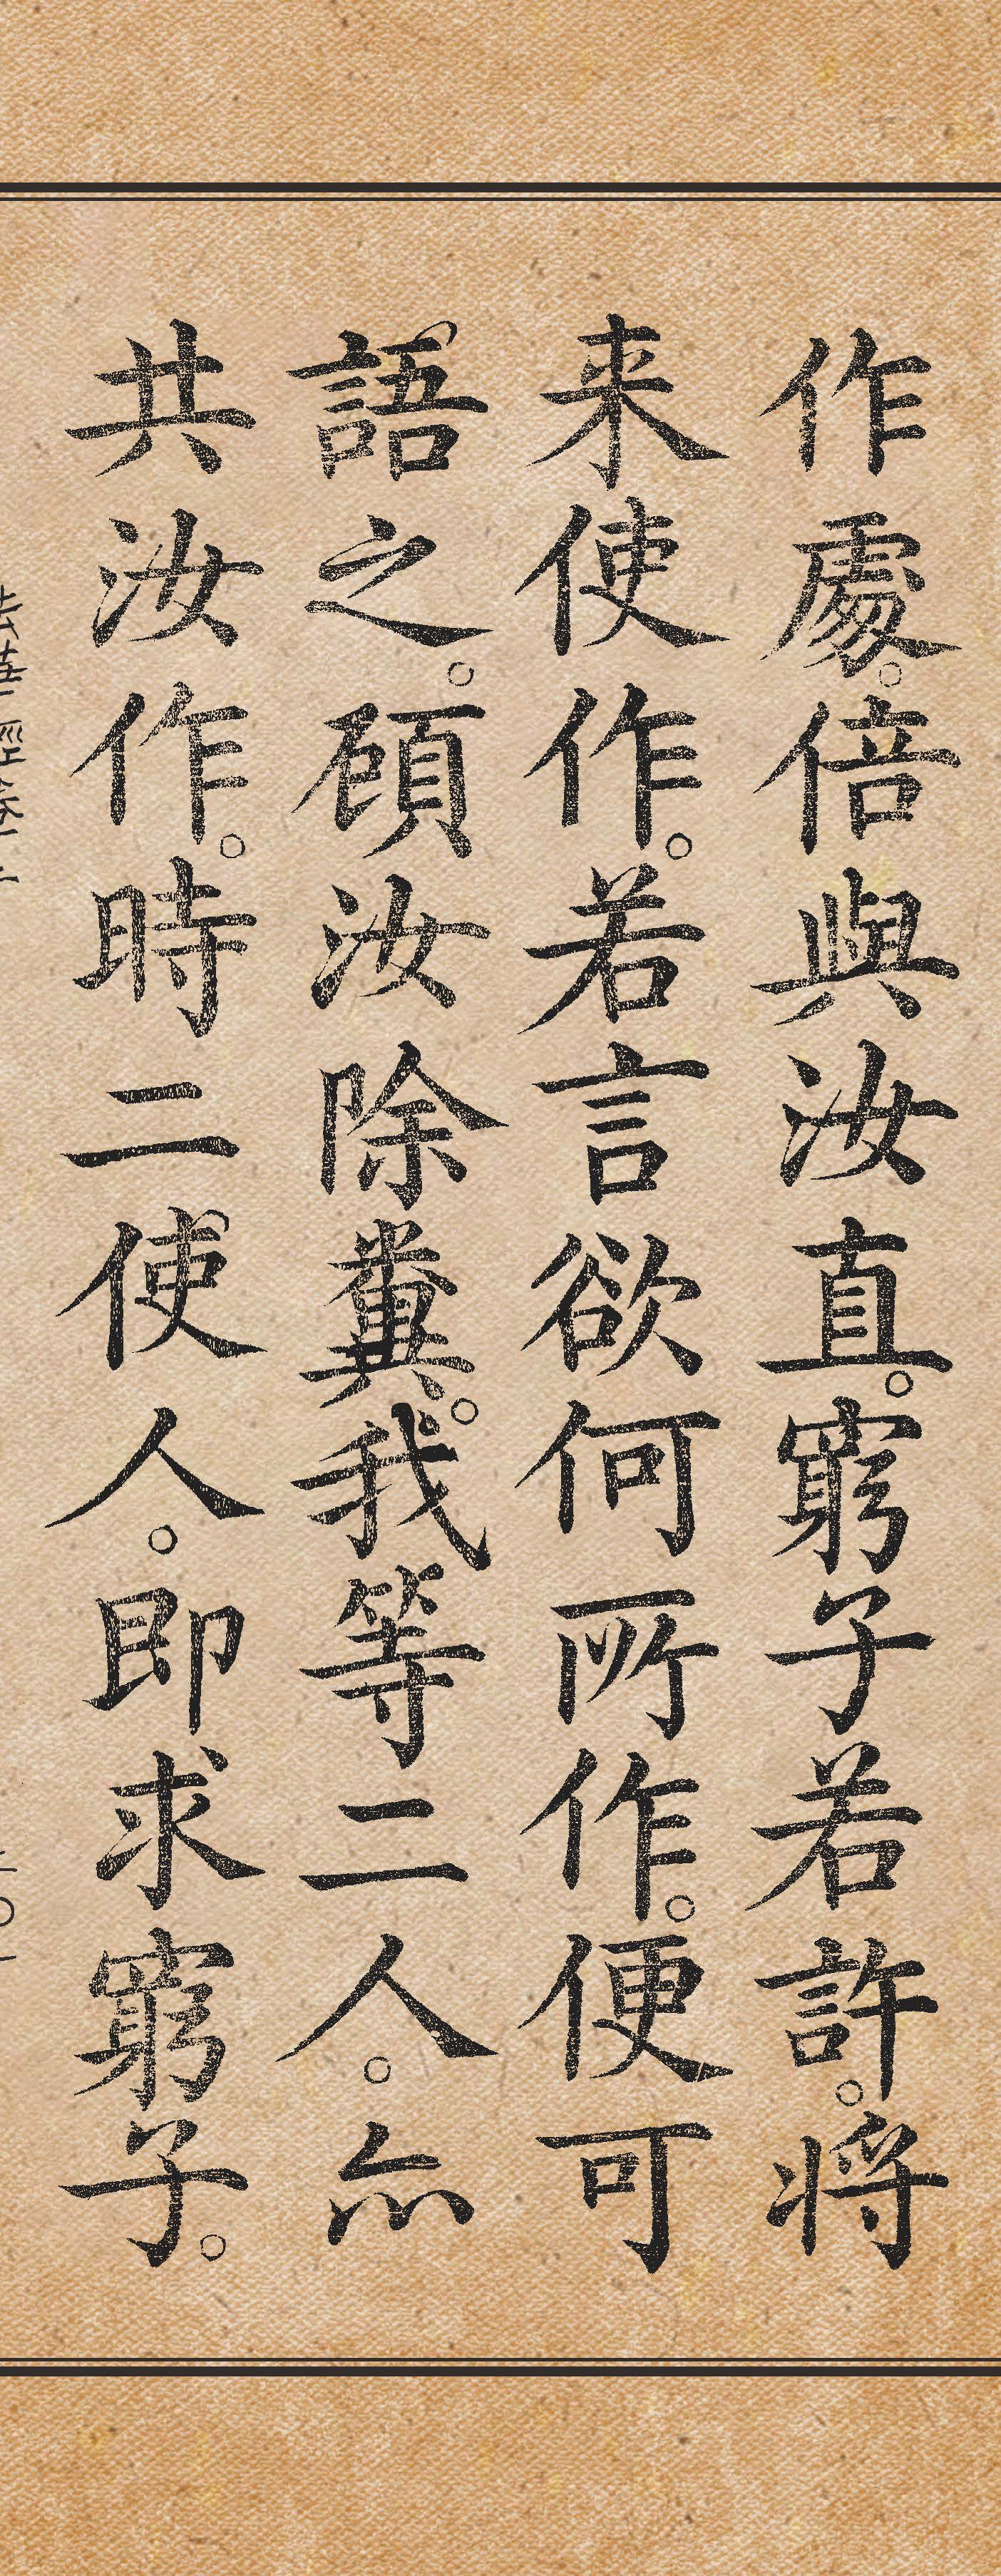 作處。倍與汝直。窮子若許。将
来使作。若言欲何所作。便可
語之。頋汝除糞。我等二人。亦
共汝作。時二使人。即求窮子。